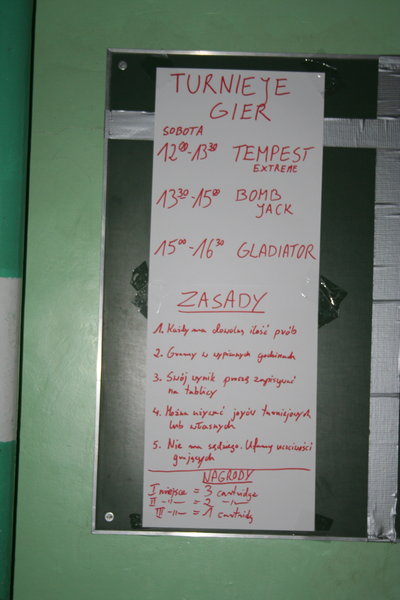 TURNIEJE
GIER
SOBOTA
12⁰⁰-13³⁰ TEMPEST
EXTREME
13³⁰-15⁰⁰ BOMB
JACK
15⁰⁰-16³⁰ GLADIATOR
ZASADY
1. Każdy ma dowolną ilość prób
2. Gramy w wyzn. godzinach
3. Swój wynik proszę zapisywać
na tablicy
4. Można używać joyów turniejowych
lub własnych
5. Nie ma sędziego. Ufamy uczciwości
grających
NAGRODY
I miejsce = 3 cartridge
II -"- = 2 -"-
III -"- = 1 cartridg